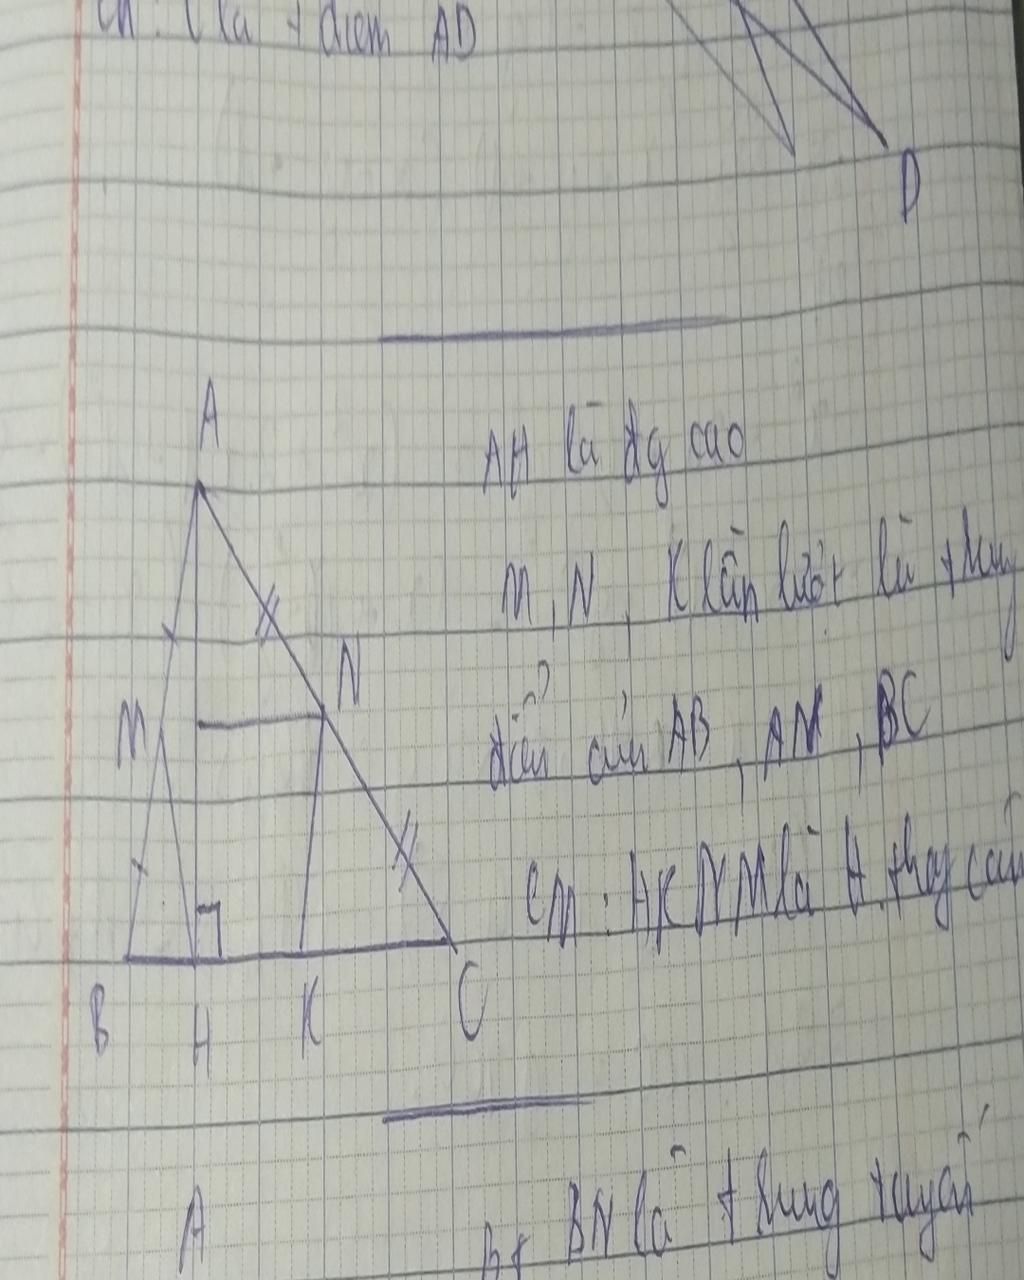 là t điểm AD
D
A
AH là đg cao
M, N, K lần lượt là trung
N
M
điểm của AB, AN, BC
CM: HKNM là H. thag cân
B
H
K
C
A
BN là trung tuyến